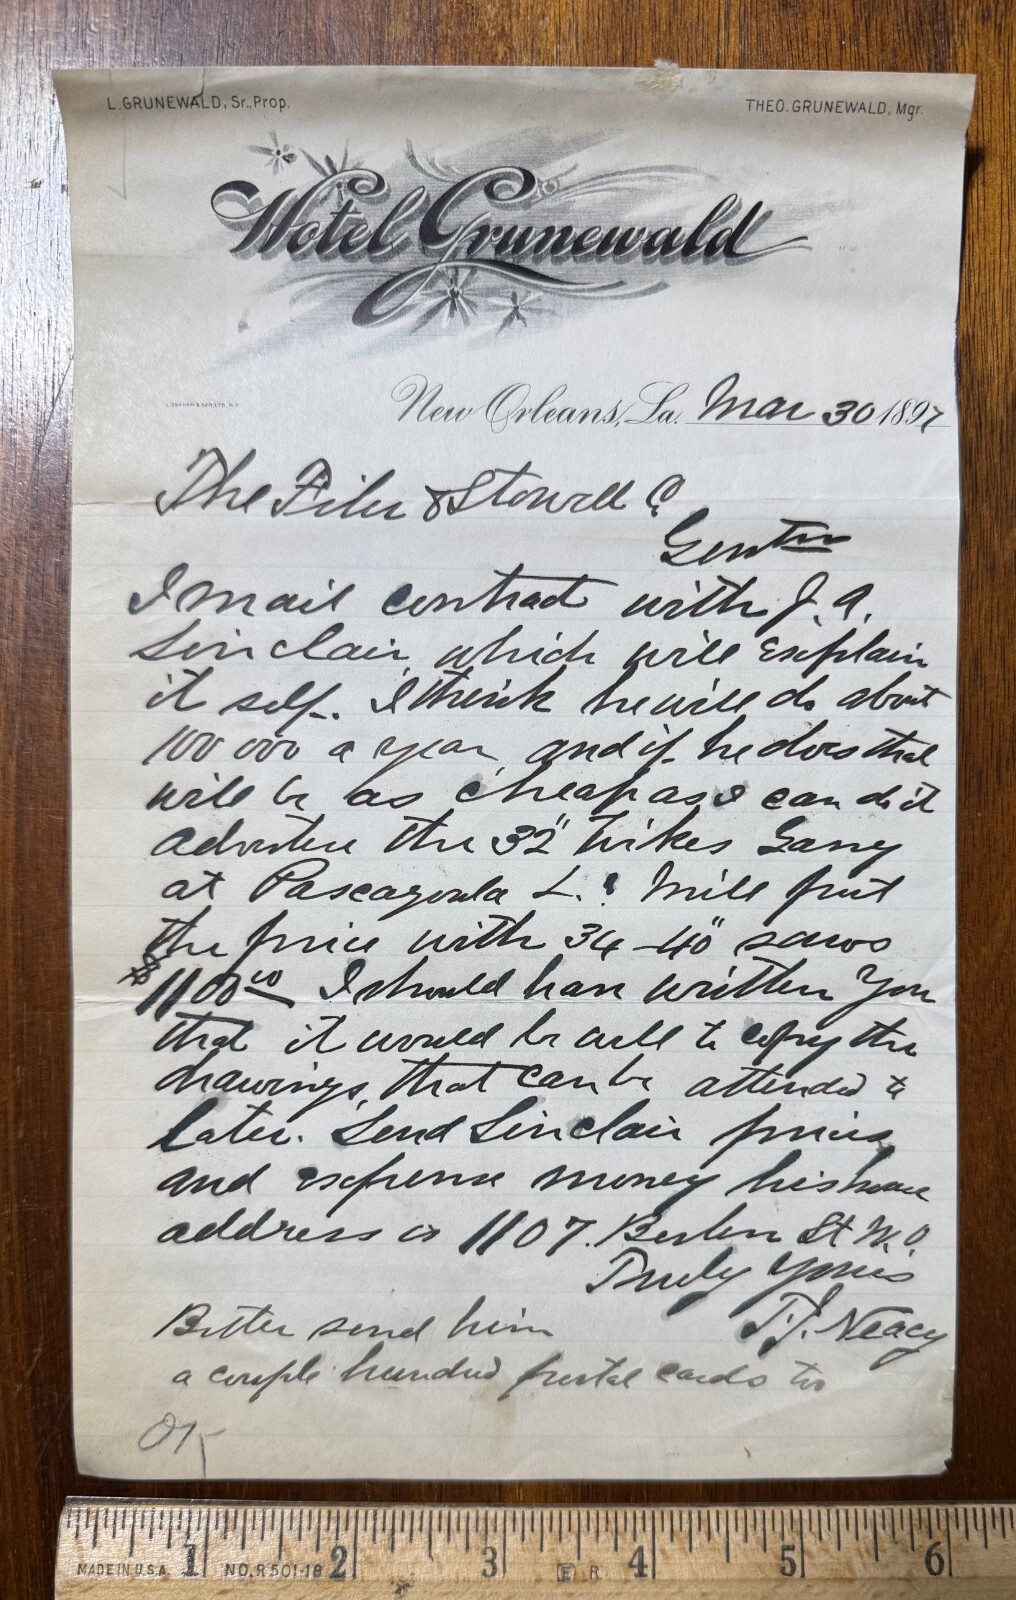 L. GRUNEWALD, Sr., Prop.
THEO. GRUNEWALD, Mgr.
Hotel Grunewald
New Orleans, La. Mar 30 1897
The Filer & Stowell Co
Gentm
I mail contract with J. A.
Sinclair which will explain
it self. I think he will do about
100 000 a year and if he does that
will be as cheap as I can do it
advertise the 32" Wikes Gang
at Pascagoula L. Mill put
the price with 34-40" saws
$1100.00 I should have written you
that it would be well to copy the
drawings, that can be attended to
later. Send Sinclair prices
and expense money his home
address is 1107. Berlin St N.O.
Truly Yours
T.J. Neacy
Better send him
a couple hundred postal cards too
MADE IN U.S.A. NO. R501-18
1 2 3 4 5 6